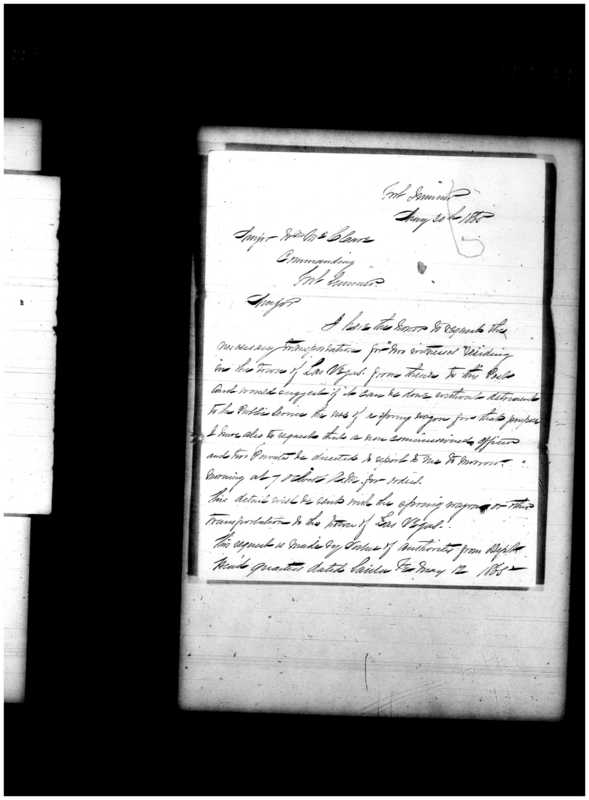 Fort Sumner
May 20th 1865
Major Wm McCleave
Commanding
Fort Sumner
Major
I have the honor to request the
necessary transportation for two witnesses residing
in the town of Las Vegas. from there to this Post
And would suggest if it can be done without detriment
to the Public Service the use of a spring wagon for that purpose
I have also to request that a non commissioned officer
and two Privates be directed to report to me to morrow
morning at 7 o'clock A.M. for orders.
This detail will be sent with the spring wagon or other
transportation to the town of Las Vegas.
This request is made by virtue of authority from Dept
Head Quarters dated Santa Fe May 12 1865